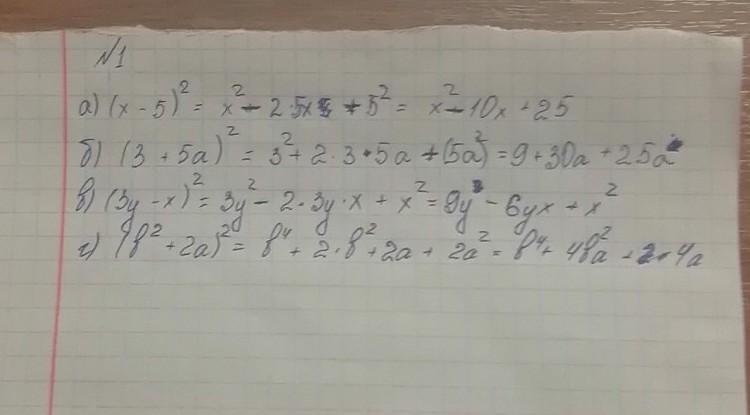 №1
а) (x - 5)² = x² - 2·5x + 5² = x² - 10x + 25
б) (3 + 5a)² = 3² + 2·3·5a + (5a)² = 9 + 30a + 25a²
в) (3y - x)² = 3y² - 2·3y·x + x² = 9y² - 6yx + x²
г) (b² + 2a)² = b⁴ + 2·b² + 2a + 2a² = b⁴ + 4b²a + 4a